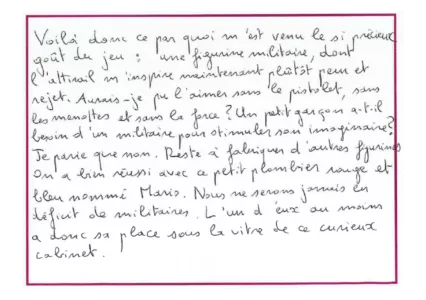 Voilà donc ce par quoi m'est venu le si précieux
goût du jeu : une figurine militaire, dont
l'attirail m'inspire maintenant plutôt peur et
rejet. Aurais-je pu l'aimer sans le pistolet, sans
les menottes et sans la force ? Un petit garçon a-t-il
besoin d'un militaire pour stimuler son imaginaire ?
Je parie que non. Reste à fabriquer d'autres figurines
On a bien réussi avec ce petit plombier rouge et
bleu nommé Mario. Nous ne serons jamais en
déficit de militaires. L'un d'eux au moins
a donc sa place sous la vitre de ce curieux
cabinet.